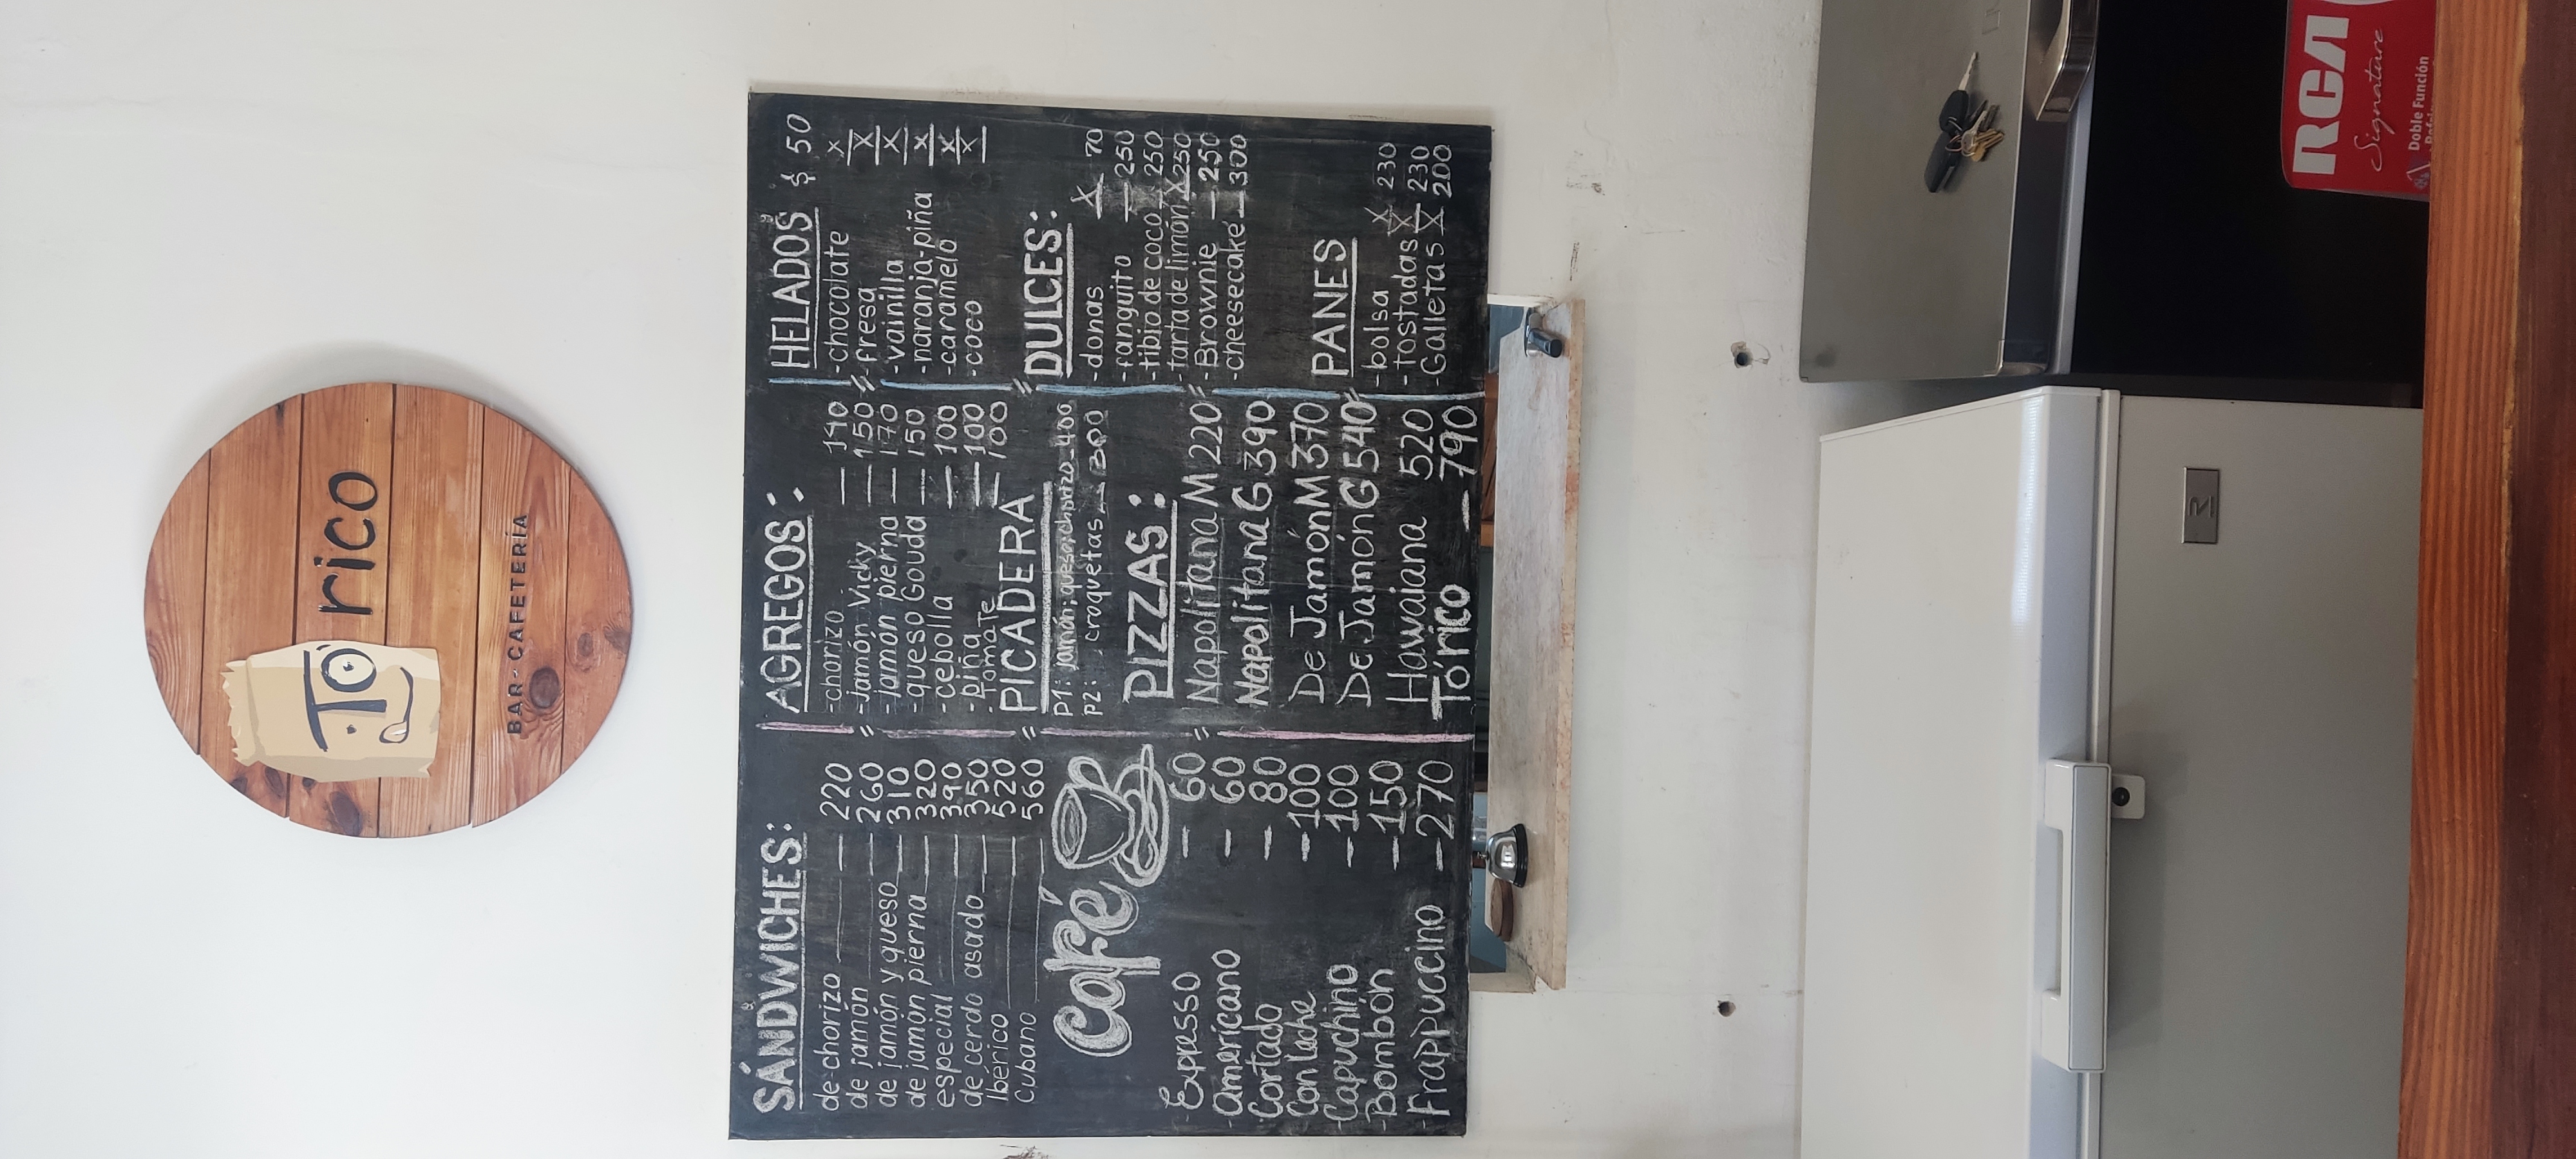 Tó rico
BAR-CAFETERÍA
SÁNDWICHES:
de chorizo — 220
de jamón — 260
de jamón y queso — 310
de jamón pierna — 320
especial — 390
de cerdo asado — 350
Ibérico — 520
Cubano — 560
café
Expresso — 60
-Americano — 60
Cortado — 80
Con leche — 100
-Capuchino — 100
-Bombón — 150
-Frappuccino — 270
AGREGOS:
-chorizo — 190
-Jamón Vicky — 150
-jamón pierna — 170
-queso Gouda — 150
-cebolla — 100
-piña — 100
-Tomate — 100
PICADERA
P1: jamón; queso; chorizo — 400
P2: croquetas — 300
PIZZAS:
Napolitana M 220
Napolitana G 390
De Jamón M 370
De Jamón G 540
Hawaiana 520
Tó rico — 790
HELADOS $ 50
-chocolate X
-fresa X
-vainilla X
-naranja-piña X
-caramelo X
-coco X
DULCES:
-donas X 70
-fanguito — 250
-tibio de coco — 250
-tarta de limón X 250
-Brownie — 250
-cheesecake — 300
PANES
-bolsa X 230
-tostadas X 230
-Galletas X 200
RCA
Signature
Doble Función